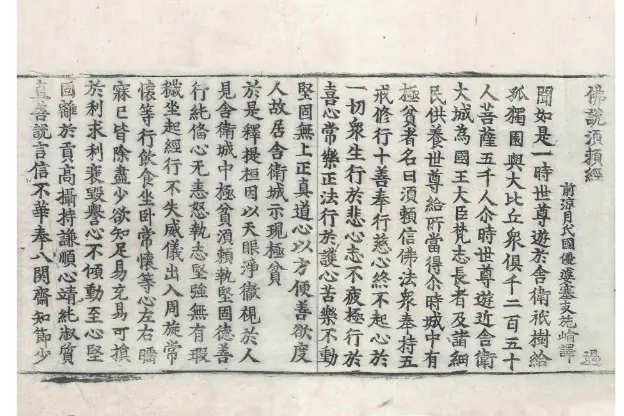 佛說須賴經
過
前涼月氏國優婆塞支施崙譯
聞如是一時世尊遊於舍衛祇樹給
孤獨園與大比丘眾俱千二百五十
人菩薩五千人尒時世尊遊近舍衛
大城為國王大臣梵志長者及諸細
民供養世尊給所當得尒時城中有
極貧者名曰須賴信佛法眾奉持五
戒修行十善奉行慈心終不起心於
一切眾生行於悲心志不疲極行於
喜心常樂正法行於護心苦樂不動
堅固無上正真道心以方便善欲度
人故居舍衛城示現極貧
於是釋提桓因以天眼淨徹視於人
見舍衛城中極貧須賴執堅固德善
行純備心无恚怒執志堅強無有瑕
穢坐起經行不失威儀出入周旋常
懷等行飲食坐臥常懷等心左右
寐已皆除盡少欲知足易充易可
於利求利褒毀譽心不傾動至心堅
固離於貢高攝持謙順心靖純淑質
直善說言信不華奉八關齋知節少